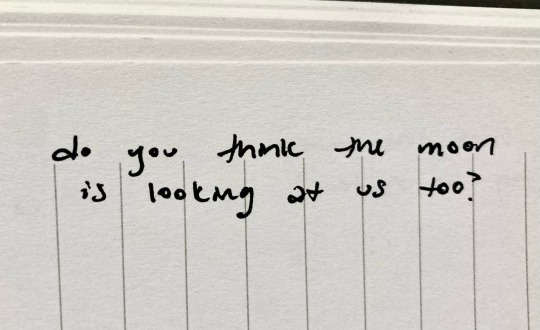 do you think the moon
is looking at us too?